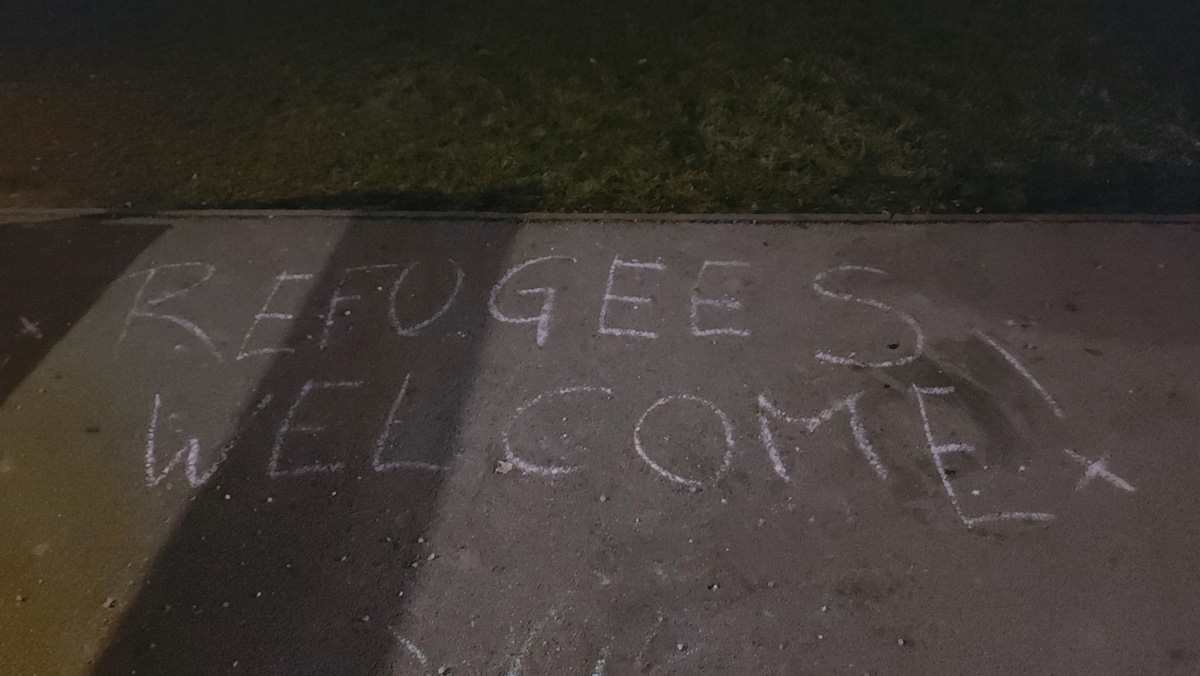 REFUGEES
WELCOME!